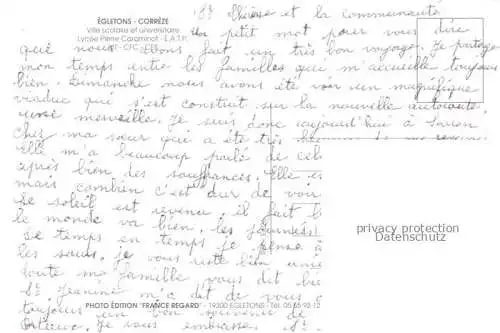 ÉGLETONS - CORRÈZE
Ville scolaire et universitaire
Lycée Pierre Caraminot - E.A.T.P.
Sr Thérèse et la communauté
un petit mot pour vous dire
que nous avons fait un très bon voyage. Je partage
mon temps entre les familles qui m'accueille toujours
bien. Dimanche nous avons été voir un magnifique
viaduc qui s'est construit sur la nouvelle autoroute.
une merveille. Je suis donc aujourd'hui à
chez ma sœur qui a été très
Elle m'a beaucoup parlé de
après bien des souffrances. Elle
mais combien c'est dur de voir
Le soleil est revenu. il fait
le monde va bien. les
De temps en temps je pense à
les sœurs. je vous reste bien
toute ma famille vous dit
Sr Jeanine m'a dit de vous
toujours un bon souvenir de
Je vous embrasse. Sr
PHOTO ÉDITION "FRANCE REGARD" - 19300 ÉGLETONS - Tél. 05 55 93 12
privacy protection
Datenschutz